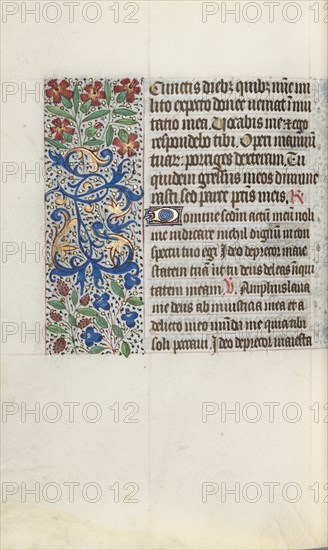 Cunctis diebus quibus nunc mi
lito expecto donec ueniat inmu
tatio mea. Uocabis me et ego
respondebo tibi. Operi manuum
tuarum porriges dexteram. Tu
quidem gressus meos dinume
rasti, sed parce peccatis meis. R
Domine secundum actum meum noli
me iudicare nichil dignum in con
spectu tuo egi Ideo deprecor maie
statem tuam ut tu deus deleas iniqui
tatem meam V. Amplius laua
me deus ab iniusticia mea et a
delicto meo munda me quia tibi
soli peccaui Ideo deprecor maiesta
PHOTO 12
PHOTO 12
PHOTO 12
PHOTO 12
PHOTO 12
PHOTO 12
PHOTO 12
PHOTO 12
PHOTO 12
PHOTO 12